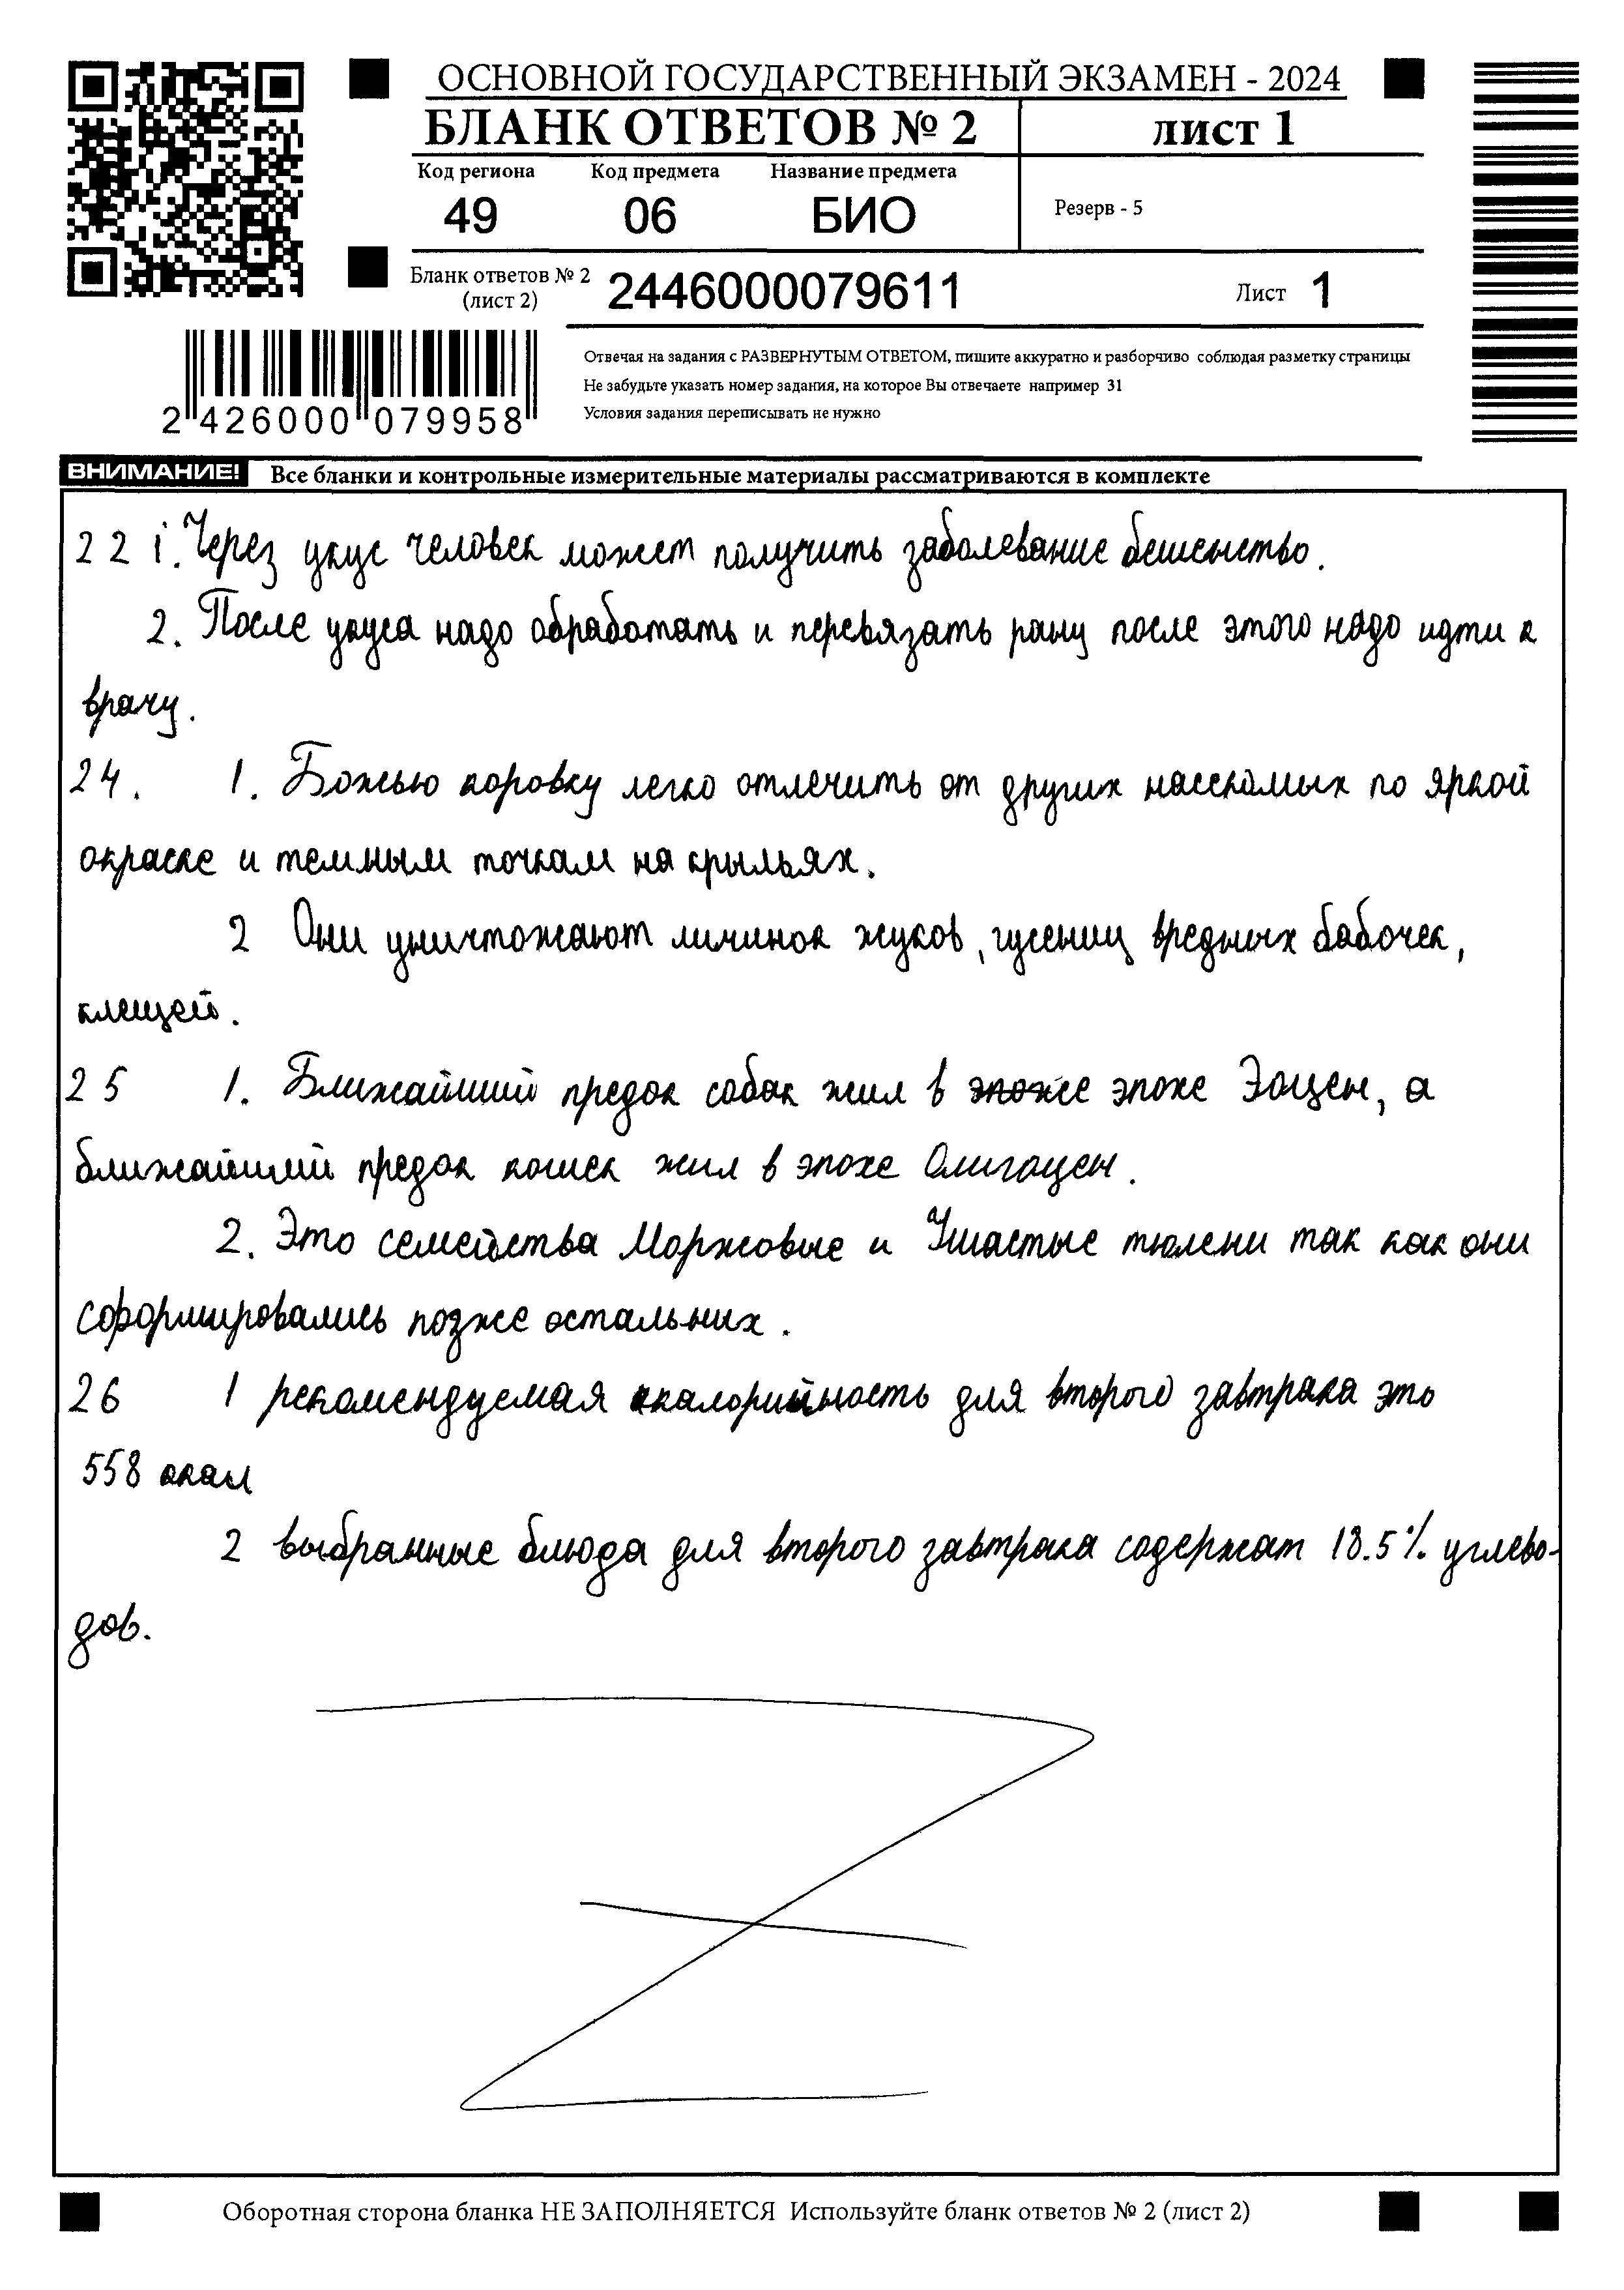 ОСНОВНОЙ ГОСУДАРСТВЕННЫЙ ЭКЗАМЕН - 2024
БЛАНК ОТВЕТОВ № 2
лист 1
Код региона Код предмета Название предмета
49 06 БИО
Резерв - 5
Бланк ответов № 2
(лист 2)
2446000079611
Лист 1
2 426000 079958
Отвечая на задания с РАЗВЕРНУТЫМ ОТВЕТОМ, пишите аккуратно и разборчиво соблюдая разметку страницы
Не забудьте указать номер задания, на которое Вы отвечаете например 31
Условия задания переписывать не нужно
ВНИМАНИЕ! Все бланки и контрольные измерительные материалы рассматриваются в комплекте
22 1. Через укус человек может получить заболевание бешенство.
2. После укуса надо обработать и перевязать рану после этого надо идти к
врачу.
24. 1. Божью коровку легко отлечить от других насекомых по яркой
окраске и темным точкам на крыльях.
2 Они уничтожают личинок жуков, гусениц вредных бабочек,
клещей.
25 1. Ближайший предок собак жил в эпоже эпохе Эоцен, а
ближайший предок кошек жил в эпохе Олигоцен.
2. Это семейства Моржовые и Ушастые тюлени так как они
сформировались позже остальных.
26 1 рекомендуемая калорийность для второго завтрака это
558 ккал
2 выбранные блюда для второго завтрака содержат 18.5% углево-
дов.
Оборотная сторона бланка НЕ ЗАПОЛНЯЕТСЯ Используйте бланк ответов № 2 (лист 2)